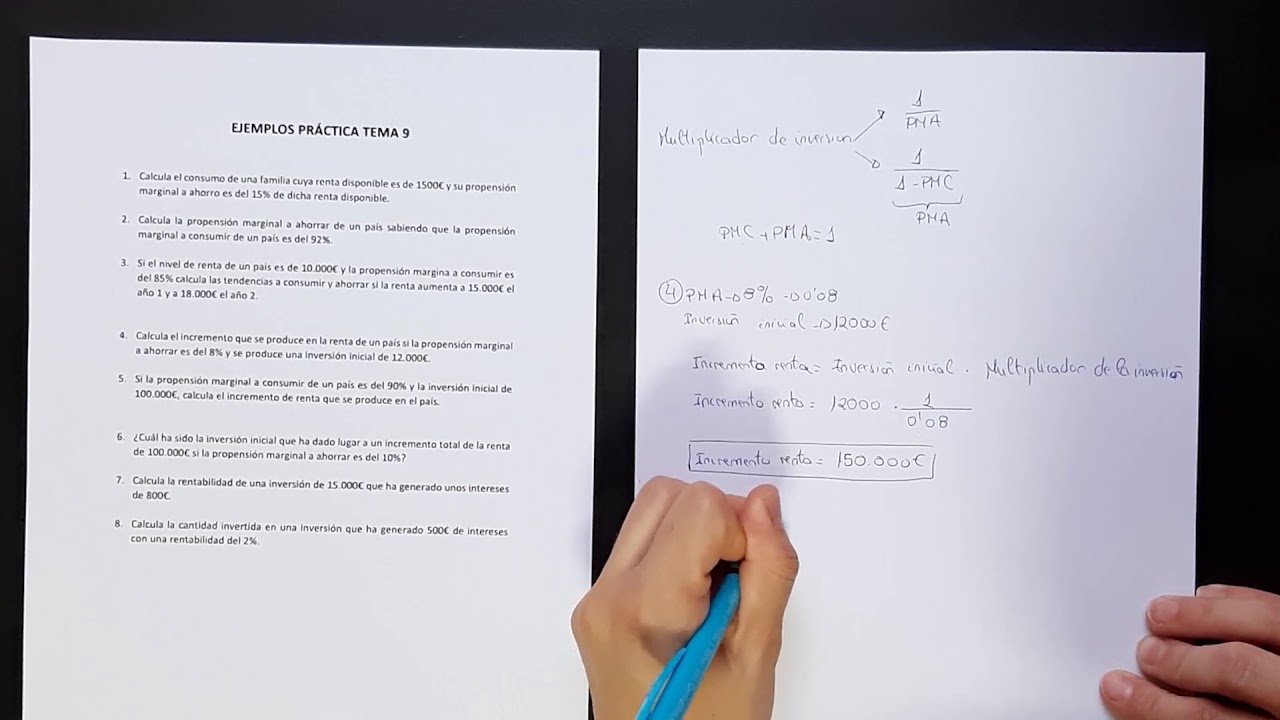 EJEMPLOS PRÁCTICA TEMA 9
1. Calcula el consumo de una familia cuya renta disponible es de 1500€ y su propensión
marginal a ahorro es del 15% de dicha renta disponible.
2. Calcula la propensión marginal a ahorrar de un país sabiendo que la propensión
marginal a consumir de un país es del 92%.
3. Si el nivel de renta de un país es de 10.000€ y la propensión margina a consumir es
del 85% calcula las tendencias a consumir y ahorrar si la renta aumenta a 15.000€ el
año 1 y a 18.000€ el año 2.
4. Calcula el incremento que se produce en la renta de un país si la propensión marginal
a ahorrar es del 8% y se produce una inversión inicial de 12.000€.
5. Si la propensión marginal a consumir de un país es del 90% y la inversión inicial de
100.000€, calcula el incremento de renta que se produce en el país.
6. ¿Cuál ha sido la inversión inicial que ha dado lugar a un incremento total de la renta
de 100.000€ si la propensión marginal a ahorrar es del 10%?
7. Calcula la rentabilidad de una inversión de 15.000€ que ha generado unos intereses
de 800€.
8. Calcula la cantidad invertida en una inversión que ha generado 500€ de intereses
con una rentabilidad del 2%.
1
PMA
Multiplicador de inversión
1
1 - PMC
PMA
PMC + PMA = 1
④ PMA → 8% → 0'08
Inversión inicial → 12000€
Incremento renta = Inversión inicial . Multiplicador de la inversión
Incremento renta = 12000 . 1
0'08
Incremento renta = 150.000€